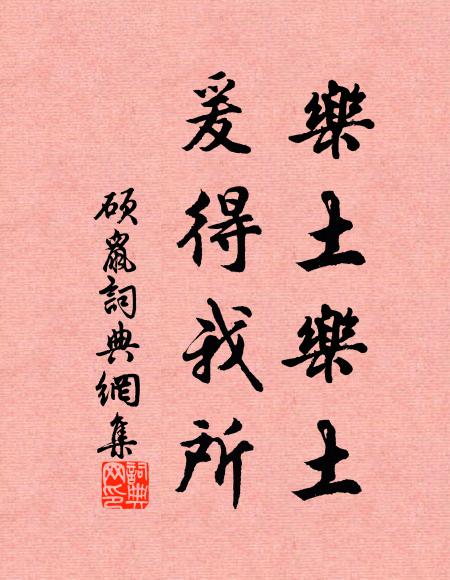 樂土樂土
爰得我所
碩鼠詞典網集
詞典网印